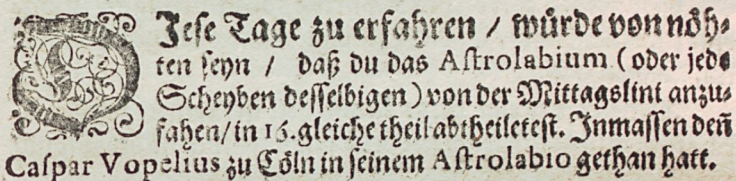 DIese Tage zu erfahren / würde von nöh⸗
ten seyn / daß du das Astrolabium (oder jede
Scheyben desselbigen) von der Mittagslini anzu⸗
fahen/ in 16. gleiche theil abtheiletest. Inmassen deñ
Caspar Vopelius zu Cöln in seinem Astrolabio gethan hatt.